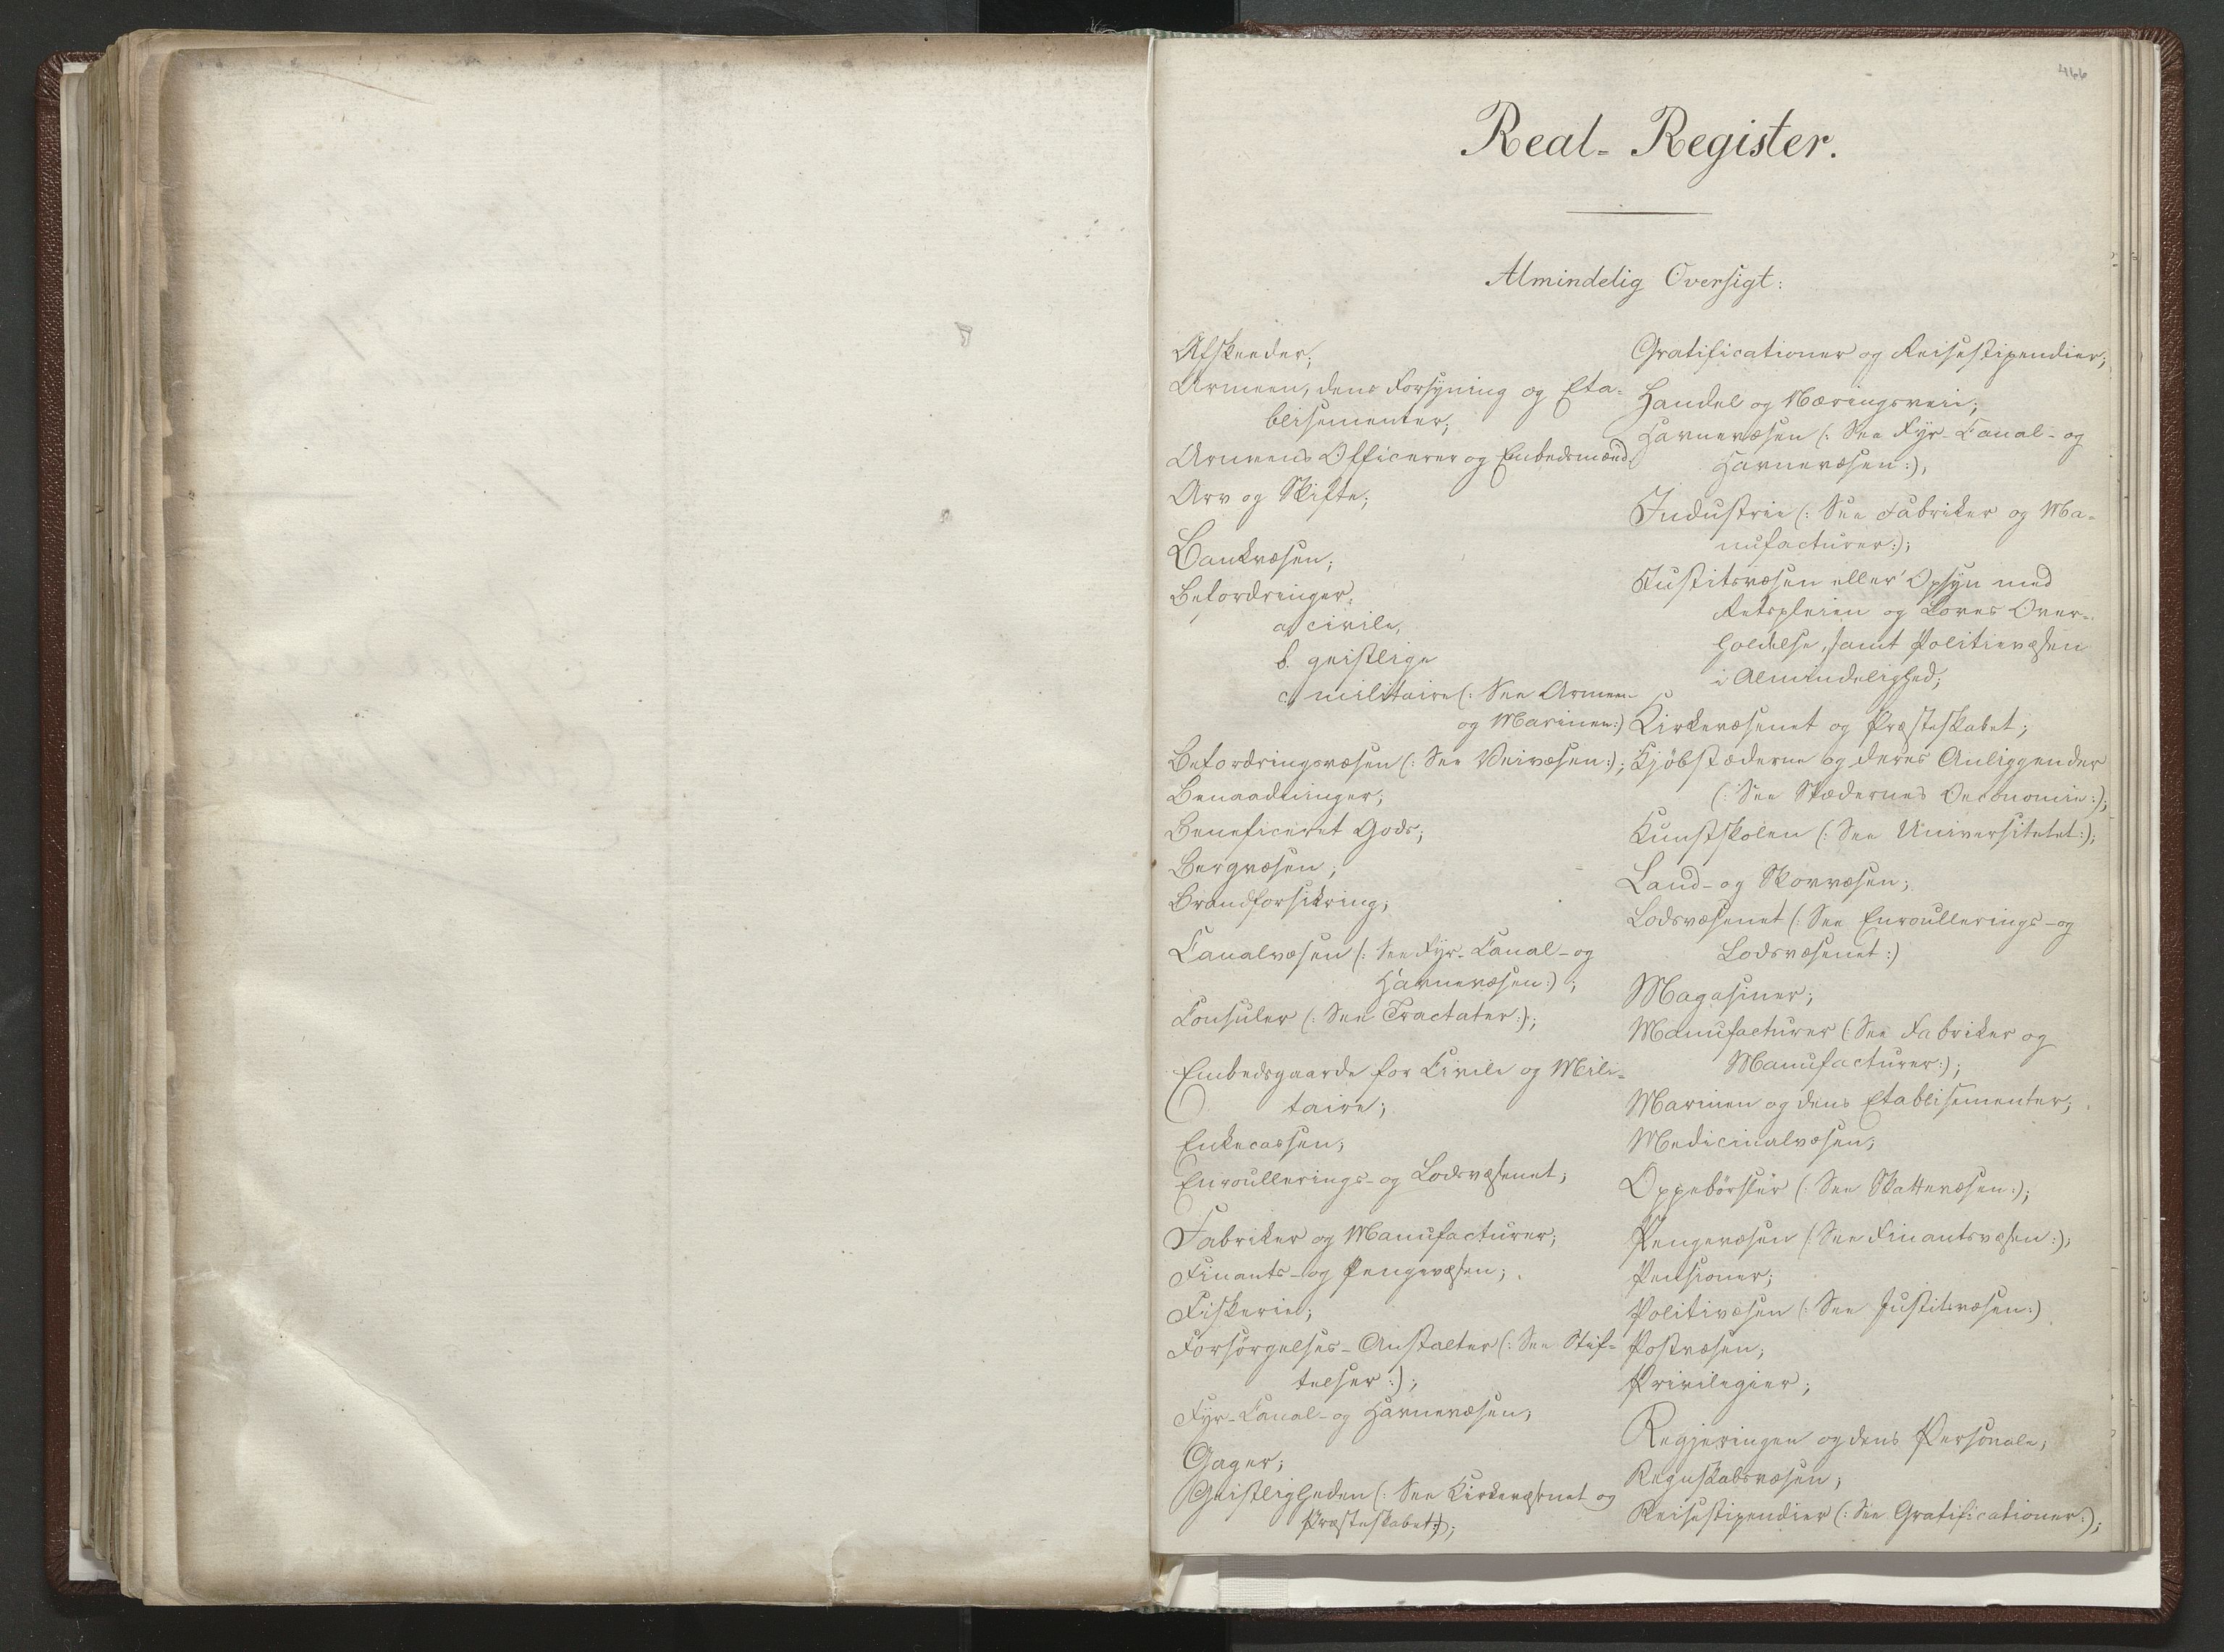 466
Real-Register.
Almindelig Oversigt:
Afskeeder;
Armeen, dens Forsyning og Eta-
blisementer;
Armeens Officerer og Embedsmænd;
Arv og Skifte;
Bankvæsen;
Befordringer:
a, civile,
b. geistlige
c, militaire (: See Armeen
og Marinen:)
Befordringsvæsen (: See Veivæsen:);
Benaadninger;
Beneficeret Gods;
Bergvæsen;
Brandforsikring;
Canalvæsen (: See Fyr- Canal- og
Havnevæsen:);
Consuler (: See Tractater:);
Embedsgaarde for Civile og Mili-
taire;
Enkecassen;
Enroullerings- og Lodsvæsenet;
Fabriker og Manufacturer;
Finants- og Pengevæsen;
Fiskerie;
Forsörgelses-Anstalter (: See Stif-
telser:);
Fyr- Canal- og Havnevæsen;
Gager;
Geistligheden (: See Kirkevæsenet og
Præsteskabet:);
Gratificationer og Reisestipendier;
Handel og Næringsveie;
Havnevæsen (: See Fyr- Canal- og
Havnevæsen:),
Industrie (: See Fabriker og Ma-
nufacturer:);
Justitsvæsen eller Opsyn med
Retspleien og Loves Over-
holdelse, samt Politievæsen
i Almindelighed;
Kirkevæsenet og Præsteskabet;
Kjöbstæderne og deres Anliggender
(: See Stædernes Oeconomie:);
Kunstskolen (: See Universitetet:);
Land- og Skovvæsen;
Lodsvæsenet (: See Enroullerings- og
Lodsvæsenet:)
Magasiner;
Manufacturer (: See Fabriker og
Manufacturer:);
Marinen og dens Etablisementer;
Medicinalvæsen;
Oppebörsler (: See Skattevæsen:);
Pengevæsen (: See Finantsvæsen:);
Pensioner;
Politivæsen (: See Justitsvæsen:)
Postvæsen;
Privilegier;
Regjeringen og dens Personale;
Regnskabsvæsen;
Reisestipendier (: See Gratificationer:);